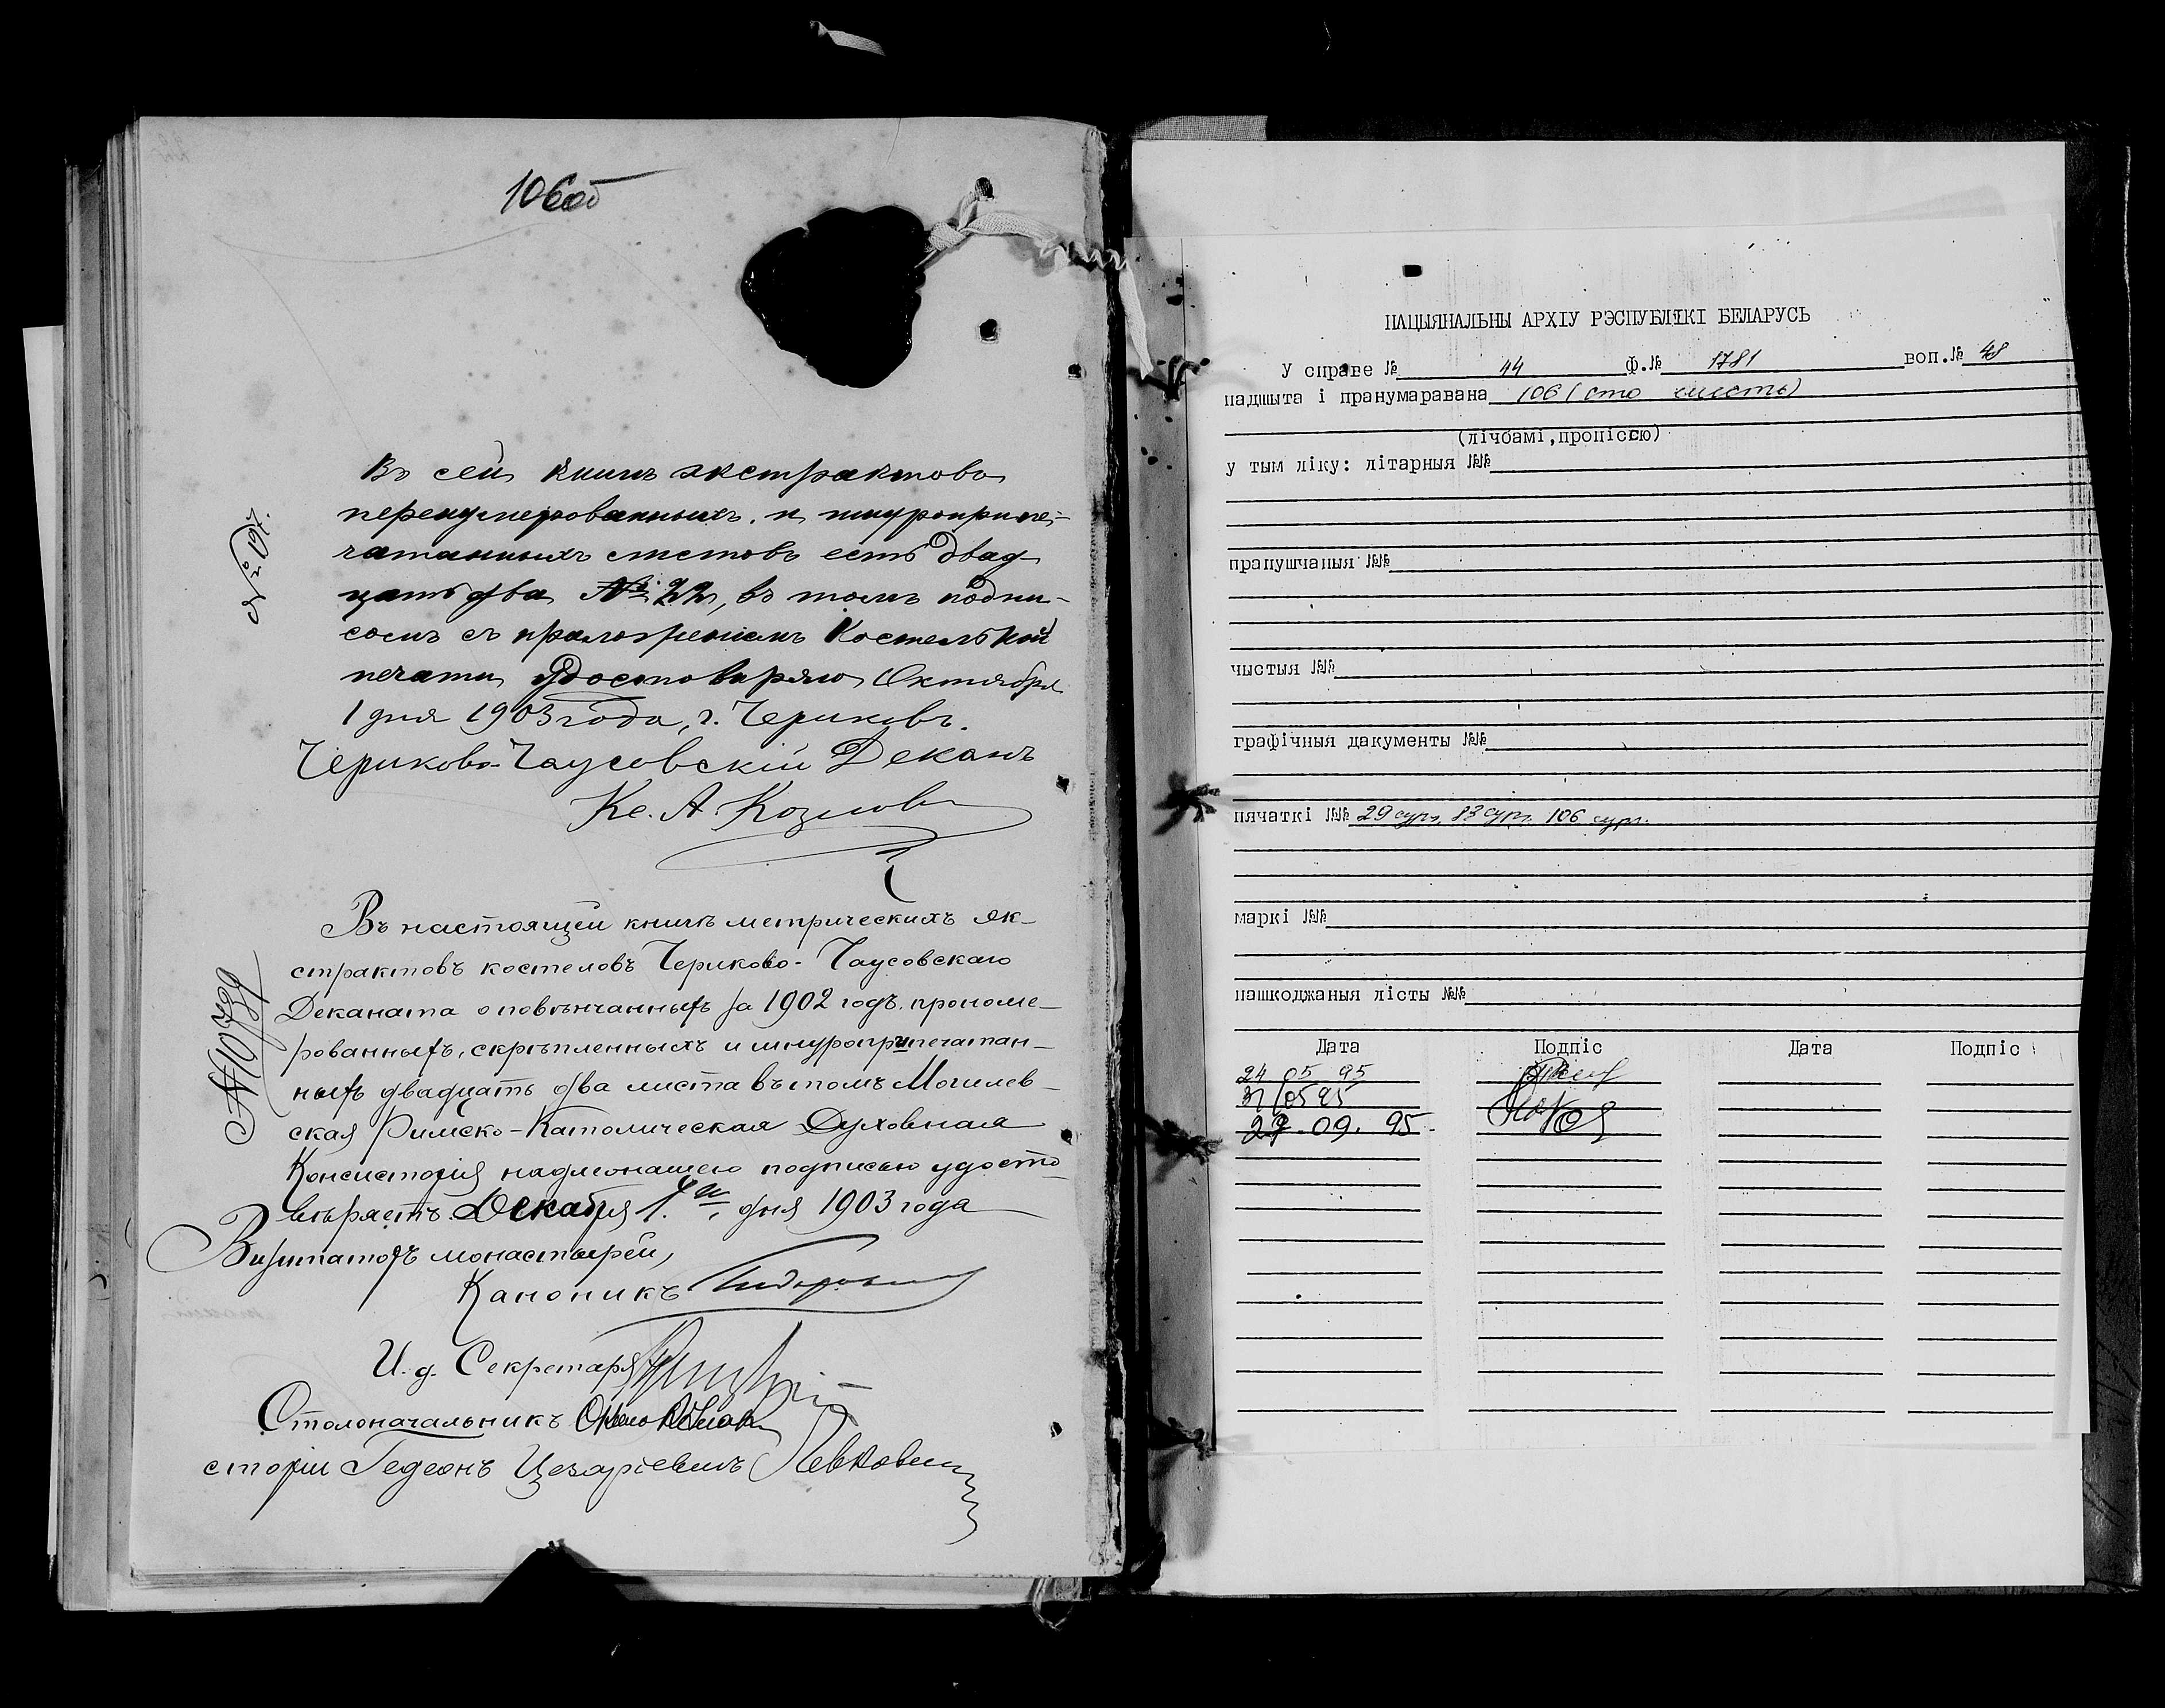 106об
№ 197.
Въ сей книгѣ экстрактовъ
перенумерованныхъ и шнуроприпе-
чатанныхъ листовъ есть двад-
цать два № 22, въ томъ подпи-
сомъ съ приложеніемъ Костельной
печати Удостовѣряю Октября
1 дня 1903 года, г. Чериковъ.
Чериково-Чаусовскій Деканъ
Кс. А. Козлов
№ 10739
Въ настоящей книгѣ метрическихъ эк-
страктовъ костеловъ Чериково-Чаусовскаго
Деканата о повѣнчанныхъ за 1902 годъ. прономе-
рованныхъ, скрѣпленныхъ и шнуроприпечатан-
ныхъ двадцать два листа въ томъ Могилев-
ская Римско-Католическая Духовная
Консисторія надлежащею подписью удосто-
вѣряетъ. Декабря 1. дня 1903 года
Визитаторъ монастырей,
Каноникъ
И. д. Секретаря
Столоначальникъ
сторіи Гедеонъ Цезаріевичъ Левкович
НАЦЫЯНАЛЬНЫ АРХІУ РЭСПУБЛІКІ БЕЛАРУСЬ
У справе № 44 Ф.№ 1781 воп.№ 48
падшыта і пранумаравана 106 (сто шесть)
(лічбамі,пропіссю)
у тым ліку: літарныя №№
прапушчаныя №№
чыстыя №№
графічныя дакументы №№
пячаткі №№ 29 сург. 83 сург. 106 сург.
маркі №№
пашкоджаныя лісты №№
Дата Подпіс Дата Подпіс
24 05 95
31 05 95
27.09.95.